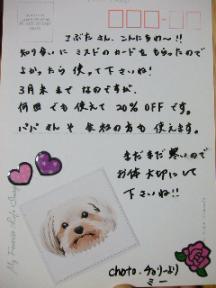 こぶたさん、こんにちわ〜!!
知り合いにミスドのカードをもらったので
よかったら使って下さいね!
3月末までなのですが、
何回でも使えて20%OFFです。
パパさんや会社の方も使えます。
まだまだ寒いので
お体大切にして
下さいね!!
choto.チョリーより
ミー